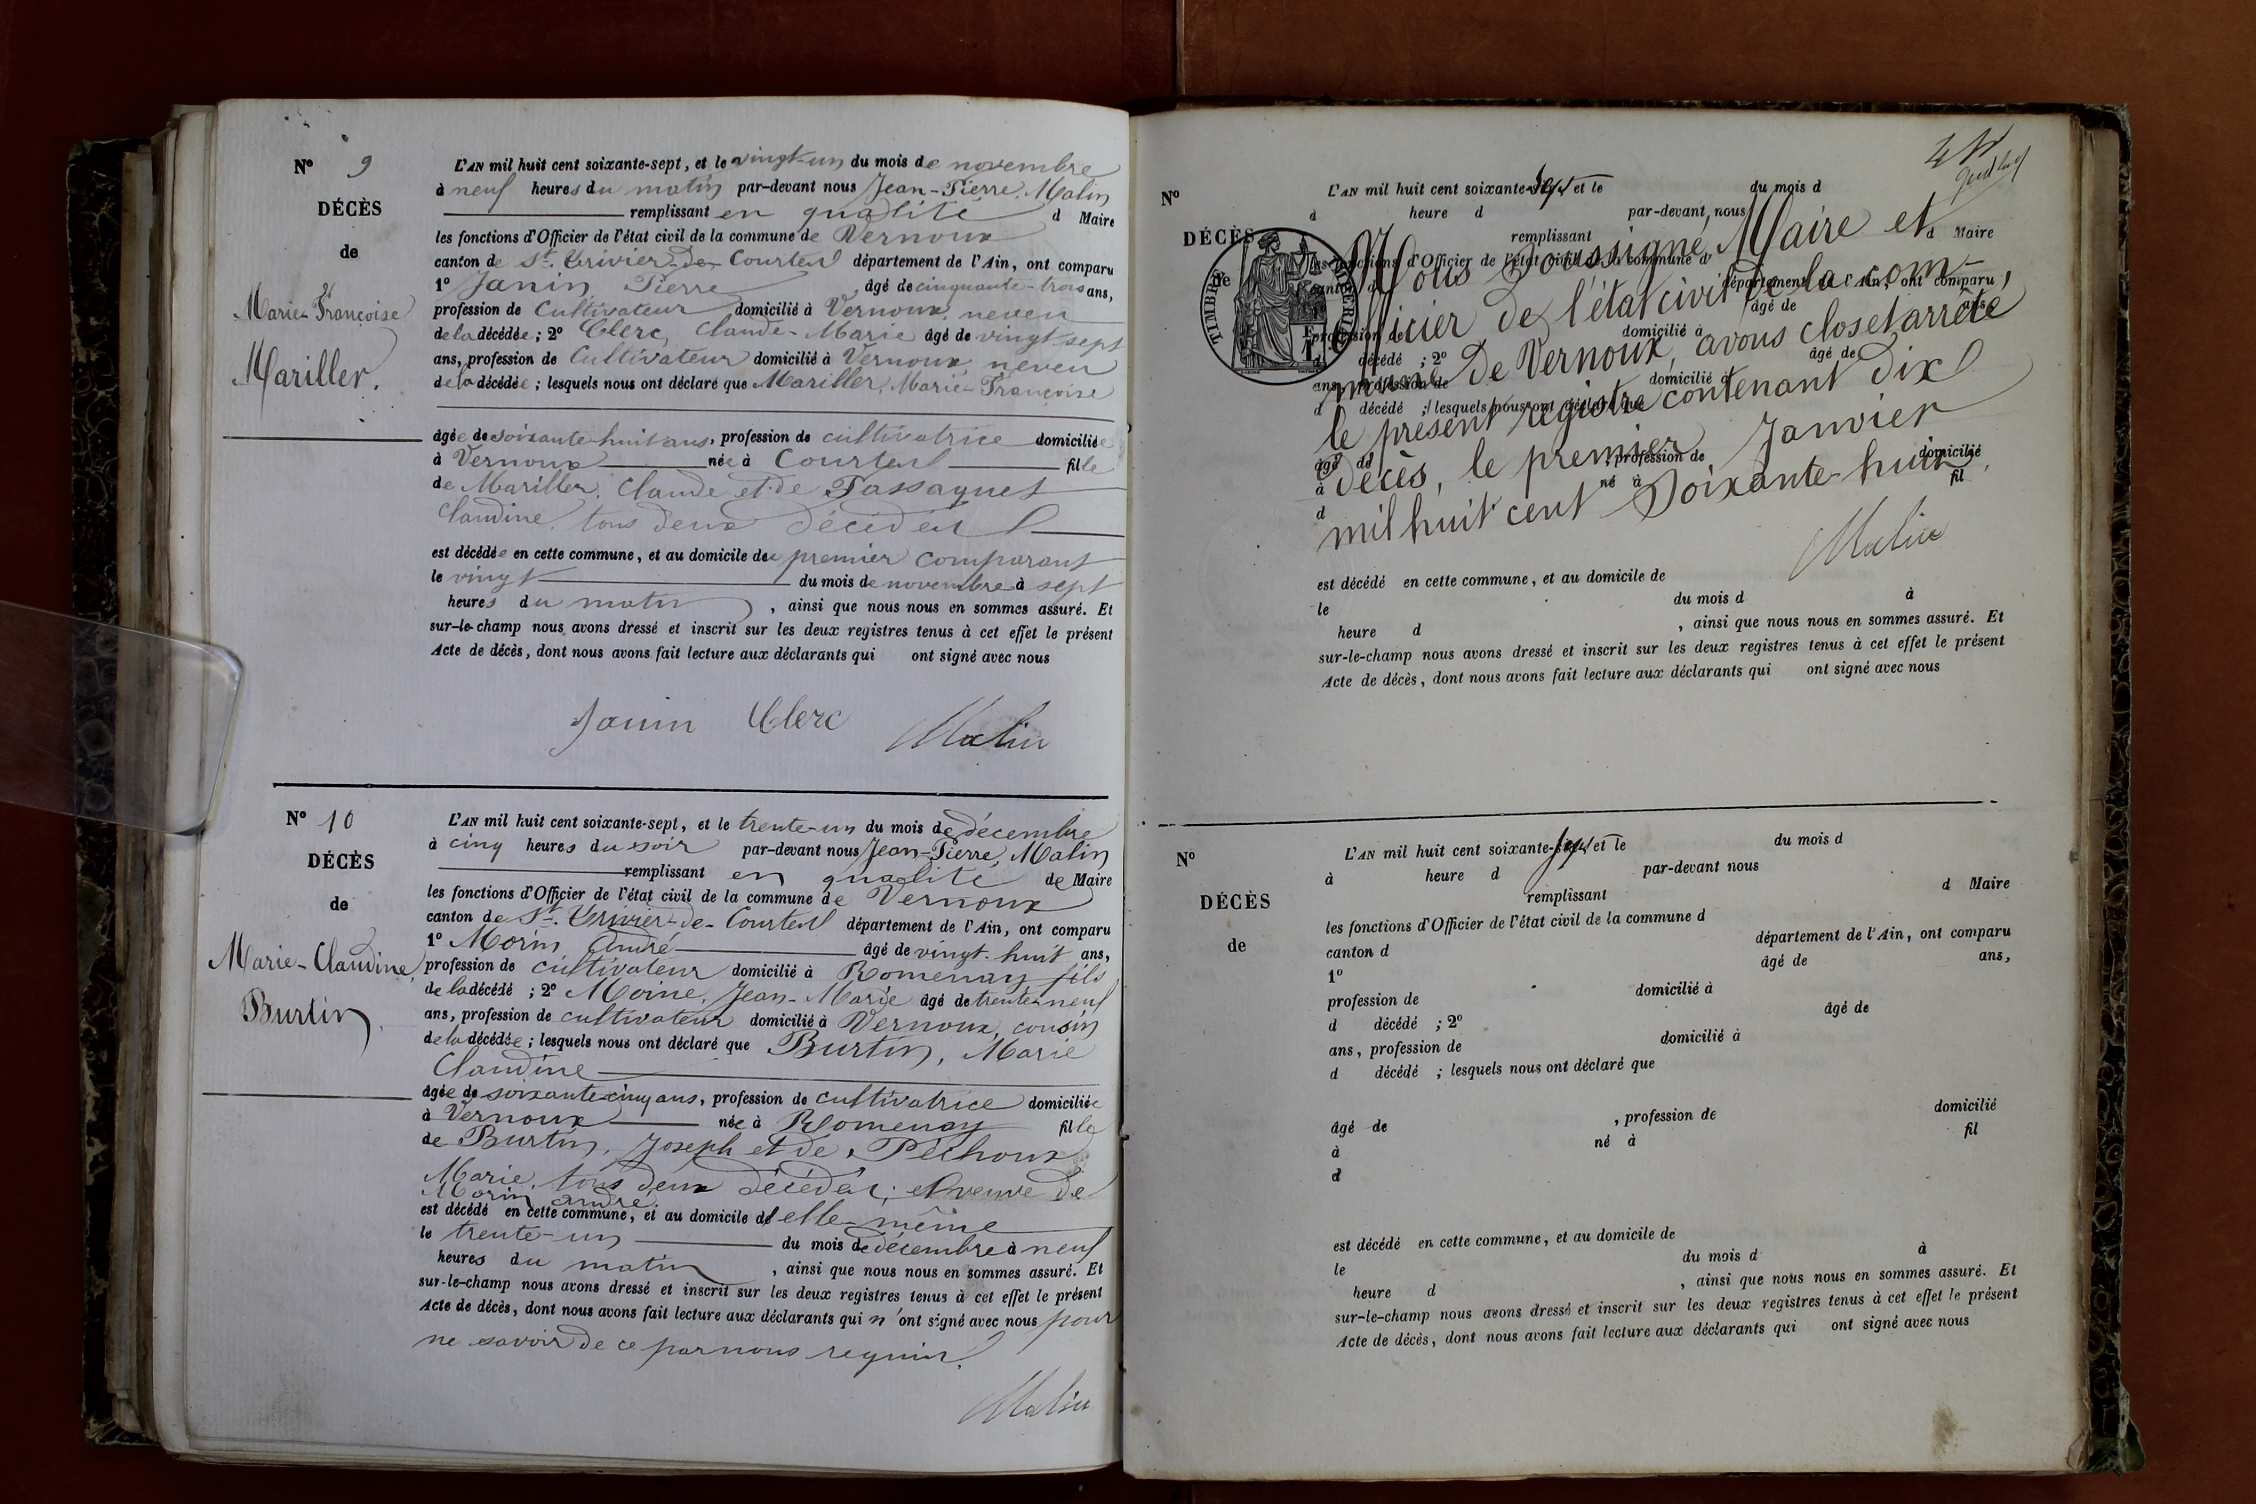 N° 9
DÉCÈS
de
Marie-Françoise
Mariller.
L'AN mil huit cent soixante-sept, et le vingt-un du mois de novembre
à neuf heures du matin par-devant nous Jean-Pierre Malin
remplissant en qualité d Maire
les fonctions d'Officier de l'état civil de la commune de Vernoux
canton de St. Trivier-de-Courtes département de l'Ain, ont comparu
1° Janin Pierre âgé de cinquante-trois ans,
profession de Cultivateur domicilié à Vernoux, neveu
de la décédée ; 2° Clerc, Claude-Marie âgé de vingt-sept
ans, profession de Cultivateur domicilié à Vernoux, neveu
de la décédée ; lesquels nous ont déclaré que Mariller, Marie-Françoise
âgée de soixante-huit ans, profession de cultivatrice domiciliée
à Vernoux née à Courtes fille
de Mariller, Claude et de Passaquet
Claudine, tous deux décédés
est décédée en cette commune, et au domicile du premier comparant
le vingt du mois de novembre à sept
heures du matin, ainsi que nous nous en sommes assuré. Et
sur-le-champ nous avons dressé et inscrit sur les deux registres tenus à cet effet le présent
Acte de décès, dont nous avons fait lecture aux déclarants qui ont signé avec nous
Janin Clerc Malin
N° 10
DÉCÈS
de
Marie-Claudine
Burtin
L'AN mil huit cent soixante-sept, et le trente-un du mois de décembre
à cinq heures du soir par-devant nous Jean-Pierre, Malin
remplissant en qualité de Maire
les fonctions d'Officier de l'état civil de la commune de Vernoux
canton de St. Trivier-de-Courtes département de l'Ain, ont comparu
1° Morin André âgé de vingt-huit ans,
profession de cultivateur domicilié à Romenay fils
de la décédé ; 2° Moine, Jean-Marie âgé de trente-neuf
ans, profession de cultivateur domicilié à Vernoux, cousin
de la décédée ; lesquels nous ont déclaré que Burtin, Marie
Claudine
âgée de soixante-cinq ans, profession de cultivatrice domiciliée
à Vernoux née à Romenay fille
de Burtin, Joseph et de Péchoux
Marie, tous deux décédés, et veuve de
Morin André.
est décédé en cette commune, et au domicile d'elle-même
le trente-un du mois de décembre à neuf
heures du matin, ainsi que nous nous en sommes assuré. Et
sur-le-champ nous avons dressé et inscrit sur les deux registres tenus à cet effet le présent
Acte de décès, dont nous avons fait lecture aux déclarants qui n'ont signé avec nous pour
ne savoir de ce par nous requis.
Malin
N°
DÉCÈS
de
TIMBRE IMPÉRIAL
L'AN mil huit cent soixante-sept et le du mois d
à heure d par-devant nous
remplissant d Maire
les fonctions d'Officier de l'état civil de la commune d
canton d département de l'Ain, ont comparu
1° âgé de ans,
profession de domicilié à
d décédé ; 2° âgé de
ans, profession de domicilié à
d décédé ; lesquels nous ont déclaré que
Nous Soussigné, Maire et
officier de l'état civil de la com-
mune de Vernoux, avons clos et arrêté
le présent registre contenant dix
décès, le premier Janvier
mil huit cent Soixante-huit.
Malin
âgé de , profession de domicilié
à né à fil
d
est décédé en cette commune, et au domicile de
le du mois d à
heure d , ainsi que nous nous en sommes assuré. Et
sur-le-champ nous avons dressé et inscrit sur les deux registres tenus à cet effet le présent
Acte de décès, dont nous avons fait lecture aux déclarants qui ont signé avec nous
N°
DÉCÈS
de
L'AN mil huit cent soixante-sept et le du mois d
à heure d par-devant nous
remplissant d Maire
les fonctions d'Officier de l'état civil de la commune d
canton d département de l'Ain, ont comparu
1° âgé de ans,
profession de domicilié à
d décédé ; 2° âgé de
ans, profession de domicilié à
d décédé ; lesquels nous ont déclaré que
âgé de , profession de domicilié
à né à fil
d
est décédé en cette commune, et au domicile de
le du mois d à
heure d , ainsi que nous nous en sommes assuré. Et
sur-le-champ nous avons dressé et inscrit sur les deux registres tenus à cet effet le présent
Acte de décès, dont nous avons fait lecture aux déclarants qui ont signé avec nous